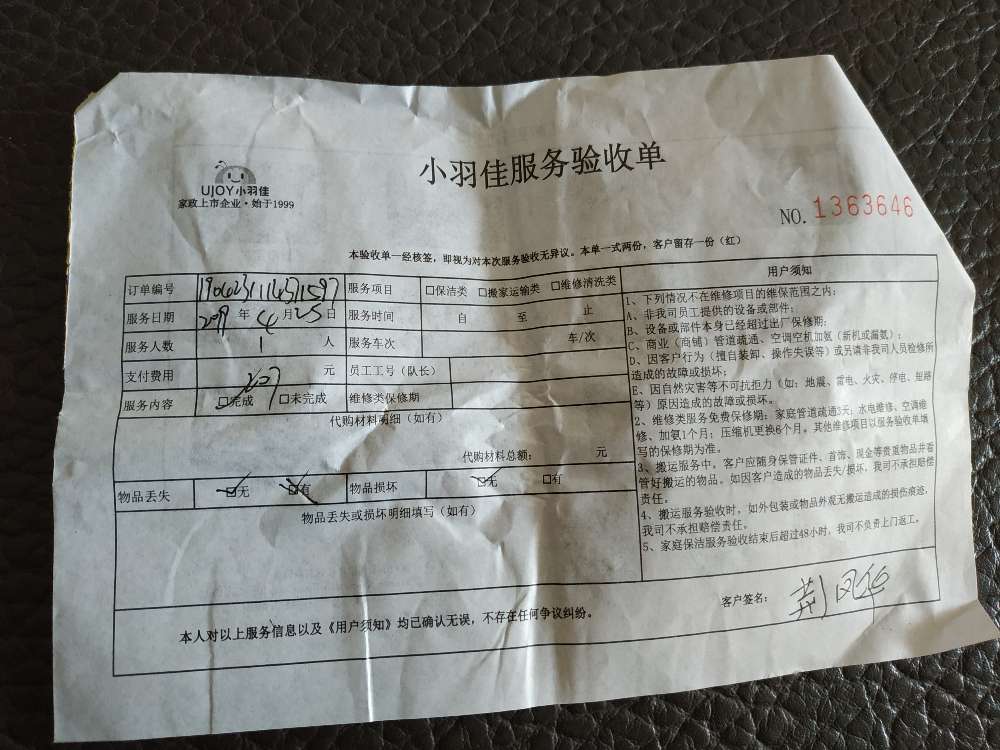 UJOY小羽佳
家政上市企业·始于1999
小羽佳服务验收单
NO. 1363646
本验收单一经核签，即视为对本次服务验收无异议。本单一式两份，客户留存一份（红）
订单编号 服务项目 □保洁类 □搬家运输类 □维修清洗类
服务日期 2019 年 4 月 25 日 服务时间 自 至 止
服务人数 1 人 服务车次 车/次
支付费用 元 员工工号（队长）
服务内容 □完成 □未完成 维修类保修期
代购材料明细（如有）
代购材料总额： 元
物品丢失 □无 □有 物品损坏 □无 □有
物品丢失或损坏明细填写（如有）
用户须知
1、下列情况不在维修项目的维保范围之内：
A、非我司员工提供的设备或部件；
B、设备或部件本身已经超过出厂保修期；
C、商业（商铺）管道疏通、空调空机加氨（新机或漏氨）；
D、因客户行为（擅自装卸、操作失误等）或另请非我司人员检修所
造成的故障或损坏；
E、因自然灾害等不可抗拒力（如：地震、雷电、火灾、停电、短路
等）原因造成的故障或损坏。
2、维修类服务免费保修期：家庭管道疏通3天；水电维修、空调维
修、加氨1个月；压缩机更换6个月。其他维修项目以服务验收单填
写的保修期为准。
3、搬运服务中，客户应随身保管证件、首饰、现金等贵重物品并看
管好搬运的物品。如因客户造成的物品丢失/损坏，我司不承担赔偿
责任。
4、搬运服务验收时，如外包装或物品外观无搬运造成的损伤痕迹，
我司不承担赔偿责任。
5、家庭保洁服务验收结束后超过48小时，我司不负责上门返工。
客户签名：
本人对以上服务信息以及《用户须知》均已确认无误，不存在任何争议纠纷。